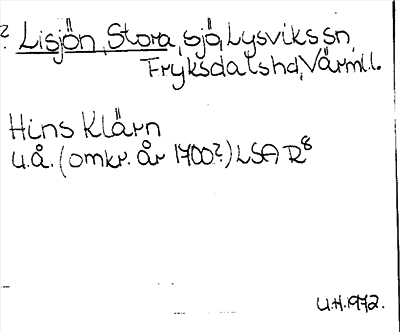 ? Lisjön, Stora, sjö, Lysviks sn,
Fryksdals hd, Värml.l.
Hins Klärn
u.å. (omkr. år 1700?) LSA R8
U.H. 1972.